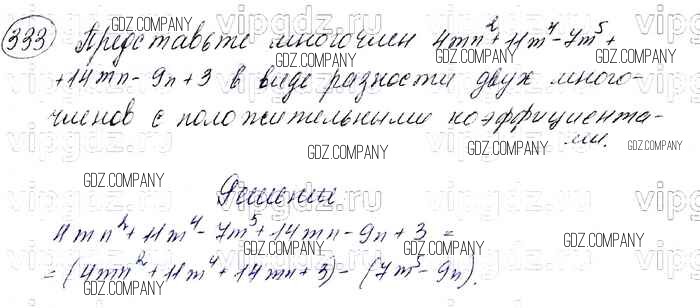 333 Представьте многочлен 4mn² + 11m⁴ - 7m⁵ +
+ 14mn - 9n + 3 в виде разности двух много-
членов с положительными коэффициента-
ми.
Решение
4mn² + 11m⁴ - 7m⁵ + 14mn - 9n + 3 =
= (4mn² + 11m⁴ + 14mn + 3) - (7m⁵ - 9n).